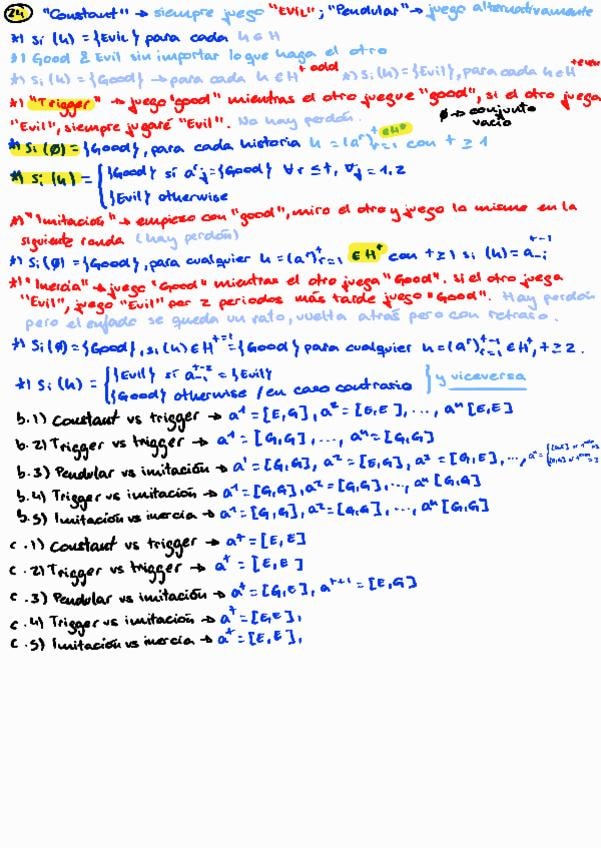 24 "Constant" → siempre juego "EVIL"; "Pendular" → juego alternativamente
*) Si(h) = {Evil} para cada h ∈ H
*) Good & Evil sin importar lo que haga el otro
*) Si(h) = {Good} → para cada h ∈ H^(t odd) *) Si(h) = {Evil}, para cada h ∈ H^(t even)
*) "Trigger" → juego "good" mientras el otro juegue "good", si el otro juega
"Evil", siempre jugaré "Evil". No hay perdón. ∅ → conjunto vacío
*) Si(∅) = {Good}, para cada historia h = (a^r)^t_{r=1} ∈ H^t con t ≥ 1
*) Si(h) = { {Good} si a^r_j = {Good} ∀ r ≤ t, ∀j = 1,2
{Evil} otherwise
*) "Imitación" → empiezo con "good", miro el otro y juego lo mismo en la
siguiente ronda (hay perdón)
*) Si(∅) = {Good}, para cualquier h = (a^r)^t_{r=1} ∈ H^t con t ≥ 1 si(h) = a^{t-1}_{-i}
*) "Inercia" → juego "Good" mientras el otro juega "Good". Si el otro juega
"Evil", juego "Evil" por 2 periodos más tarde juego "Good". Hay perdón
pero el enfado se queda un rato, vuelta atrás pero con retraso.
*) Si(∅) = {Good}, si(h) ∈ H^{t=1} = {Good} para cualquier h = (a^r)^{t-1}_{r=1} ∈ H^t, t ≥ 2.
*) Si(h) = { {Evil} si a^{t-2}_{-i} = {Evil}
{Good} otherwise / en caso contrario } y viceversa
b.1) Constant vs trigger → a¹ = [E,G], a² = [E,E], ..., aⁿ [E,E]
b.2) Trigger vs trigger → a¹ = [G,G], ..., aⁿ = [G,G]
b.3) Pendular vs imitación → a¹ = [G,G], a² = [E,G], a³ = [G,E], ...,
b.4) Trigger vs imitación → a¹ = [G,G], a² = [G,G], ..., aⁿ [G,G]
b.5) Imitación vs inercia → a¹ = [G,G], a² = [G,G], ..., aⁿ [G,G]
c.1) Constant vs trigger → a^t = [E,E]
c.2) Trigger vs trigger → a^t = [E,E]
c.3) Pendular vs imitación → a^t = [G,E], a^{t+1} = [E,G]
c.4) Trigger vs imitación → a^t = [G,E],
c.5) Imitación vs inercia → a^t = [E,E],